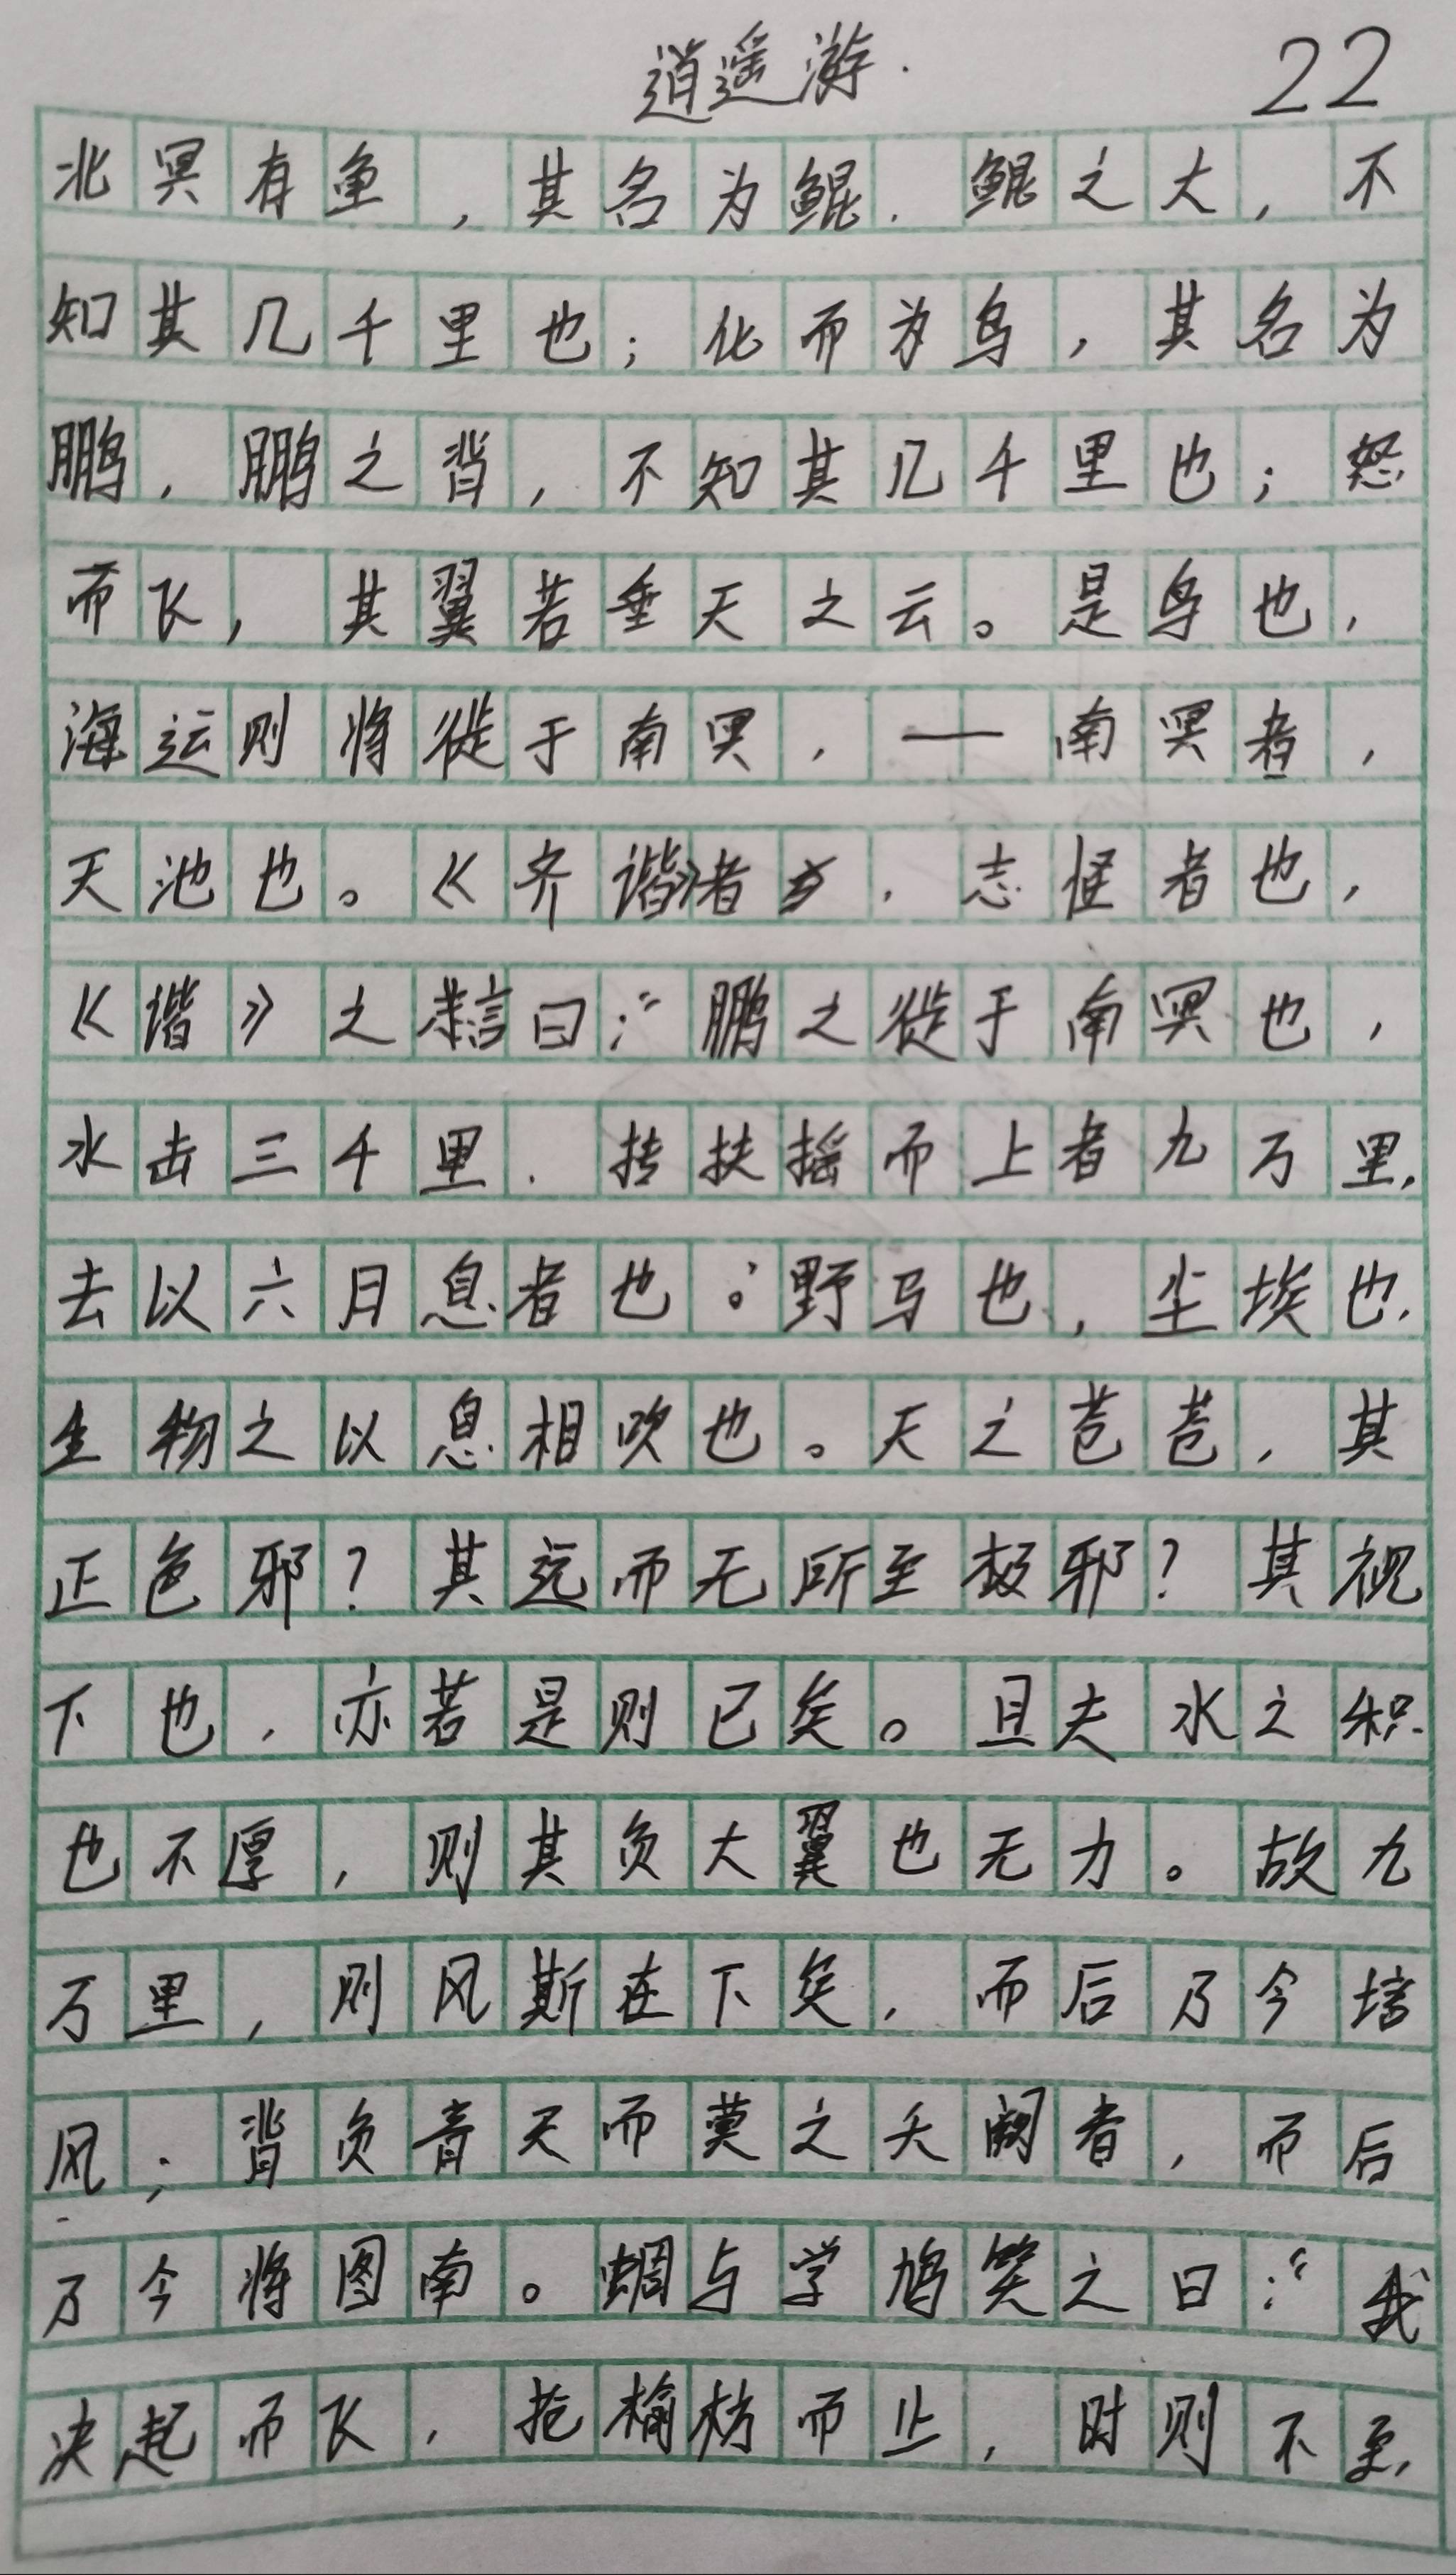 逍遥游. 22
北冥有鱼，其名为鲲.鲲之大，不
知其几千里也；化而为鸟，其名为
鹏，鹏之背，不知其几千里也；怒
而飞，其翼若垂天之云。是鸟也，
海运则将徙于南冥，——南冥者，
天池也。《齐谐》者，志怪者也，
《谐》之言曰：“鹏之徙于南冥也，
水击三千里.抟扶摇而上者九万里，
去以六月息者也。”野马也，尘埃也.
生物之以息相吹也。天之苍苍，其
正色邪？其远而无所至极邪？其视
下也，亦若是则已矣。且夫水之积
也不厚，则其负大翼也无力。故九
万里，则风斯在下矣，而后乃今培
风；背负青天而莫之夭阏者，而后
乃今将图南。蜩与学鸠笑之曰：“我
决起而飞，抢榆枋而止，时则不至，